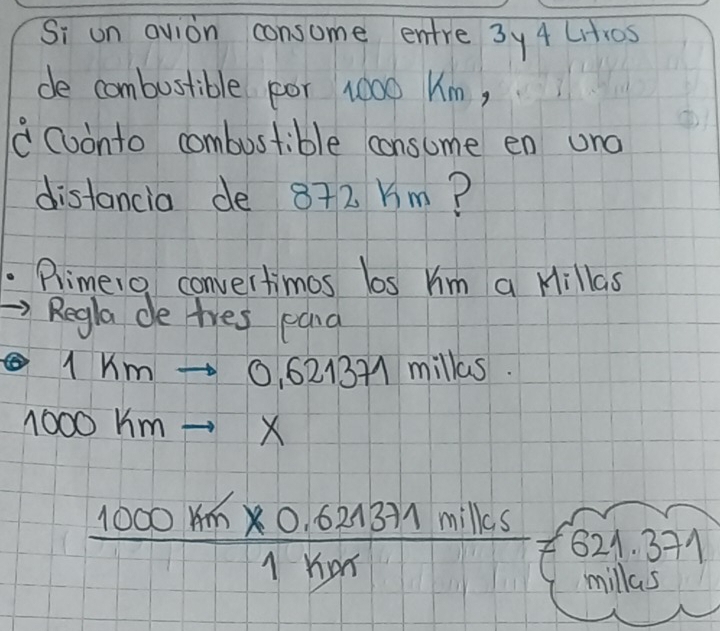 Si un avión consume entre 3 y 4 Litros
de combustible por 1000 Km,
¿Cuánto combustible consume en una
distancia de 872 Km?
• Primero convertimos los Km a Millas
→ Regla de tres para
1 Km → 0,621371 millas.
1000 Km → X
1000 Km x 0.621371 millas
1 Km
= 621.371
millas